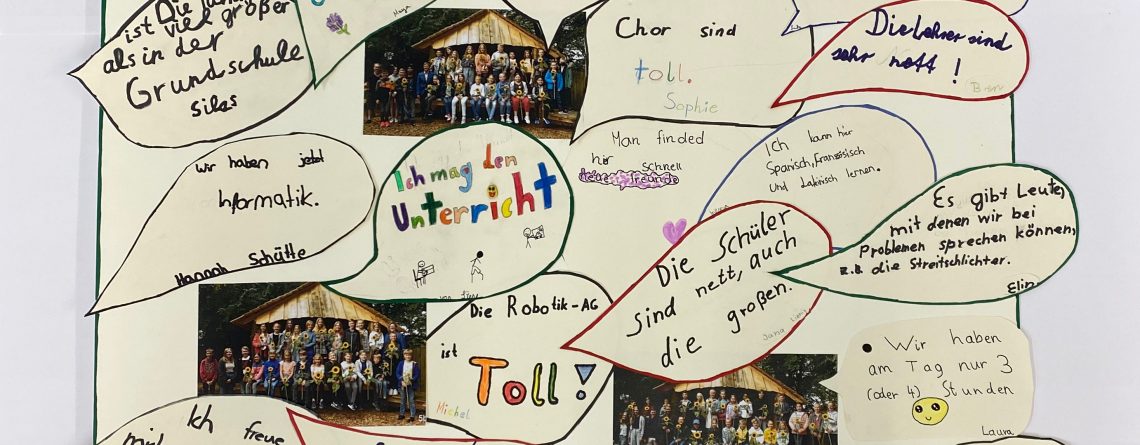 ist Die
ist viel größer
als in der
Grundschule
silas
Chor sind
toll.
Sophie
Die Lehrer sind
sehr nett !
wir haben jetzt
Informatik.
Hannah Schütte
Ich mag den
Unterricht
Man finded
hir schnell
neue freunde
Ich kann hir
Spanisch, Französisch
und Lateinisch lernen.
Es gibt Leute,
mit denen wir bei
Problemen sprechen können,
z.B. die Streitschlichter.
Elin
Die Schüler
sind nett, auch
die großen.
Jana
Die Robotik-AG
ist
Toll!
Michel
Wir haben
am Tag nur 3
(oder 4) Stunden
Laura
Ich freue